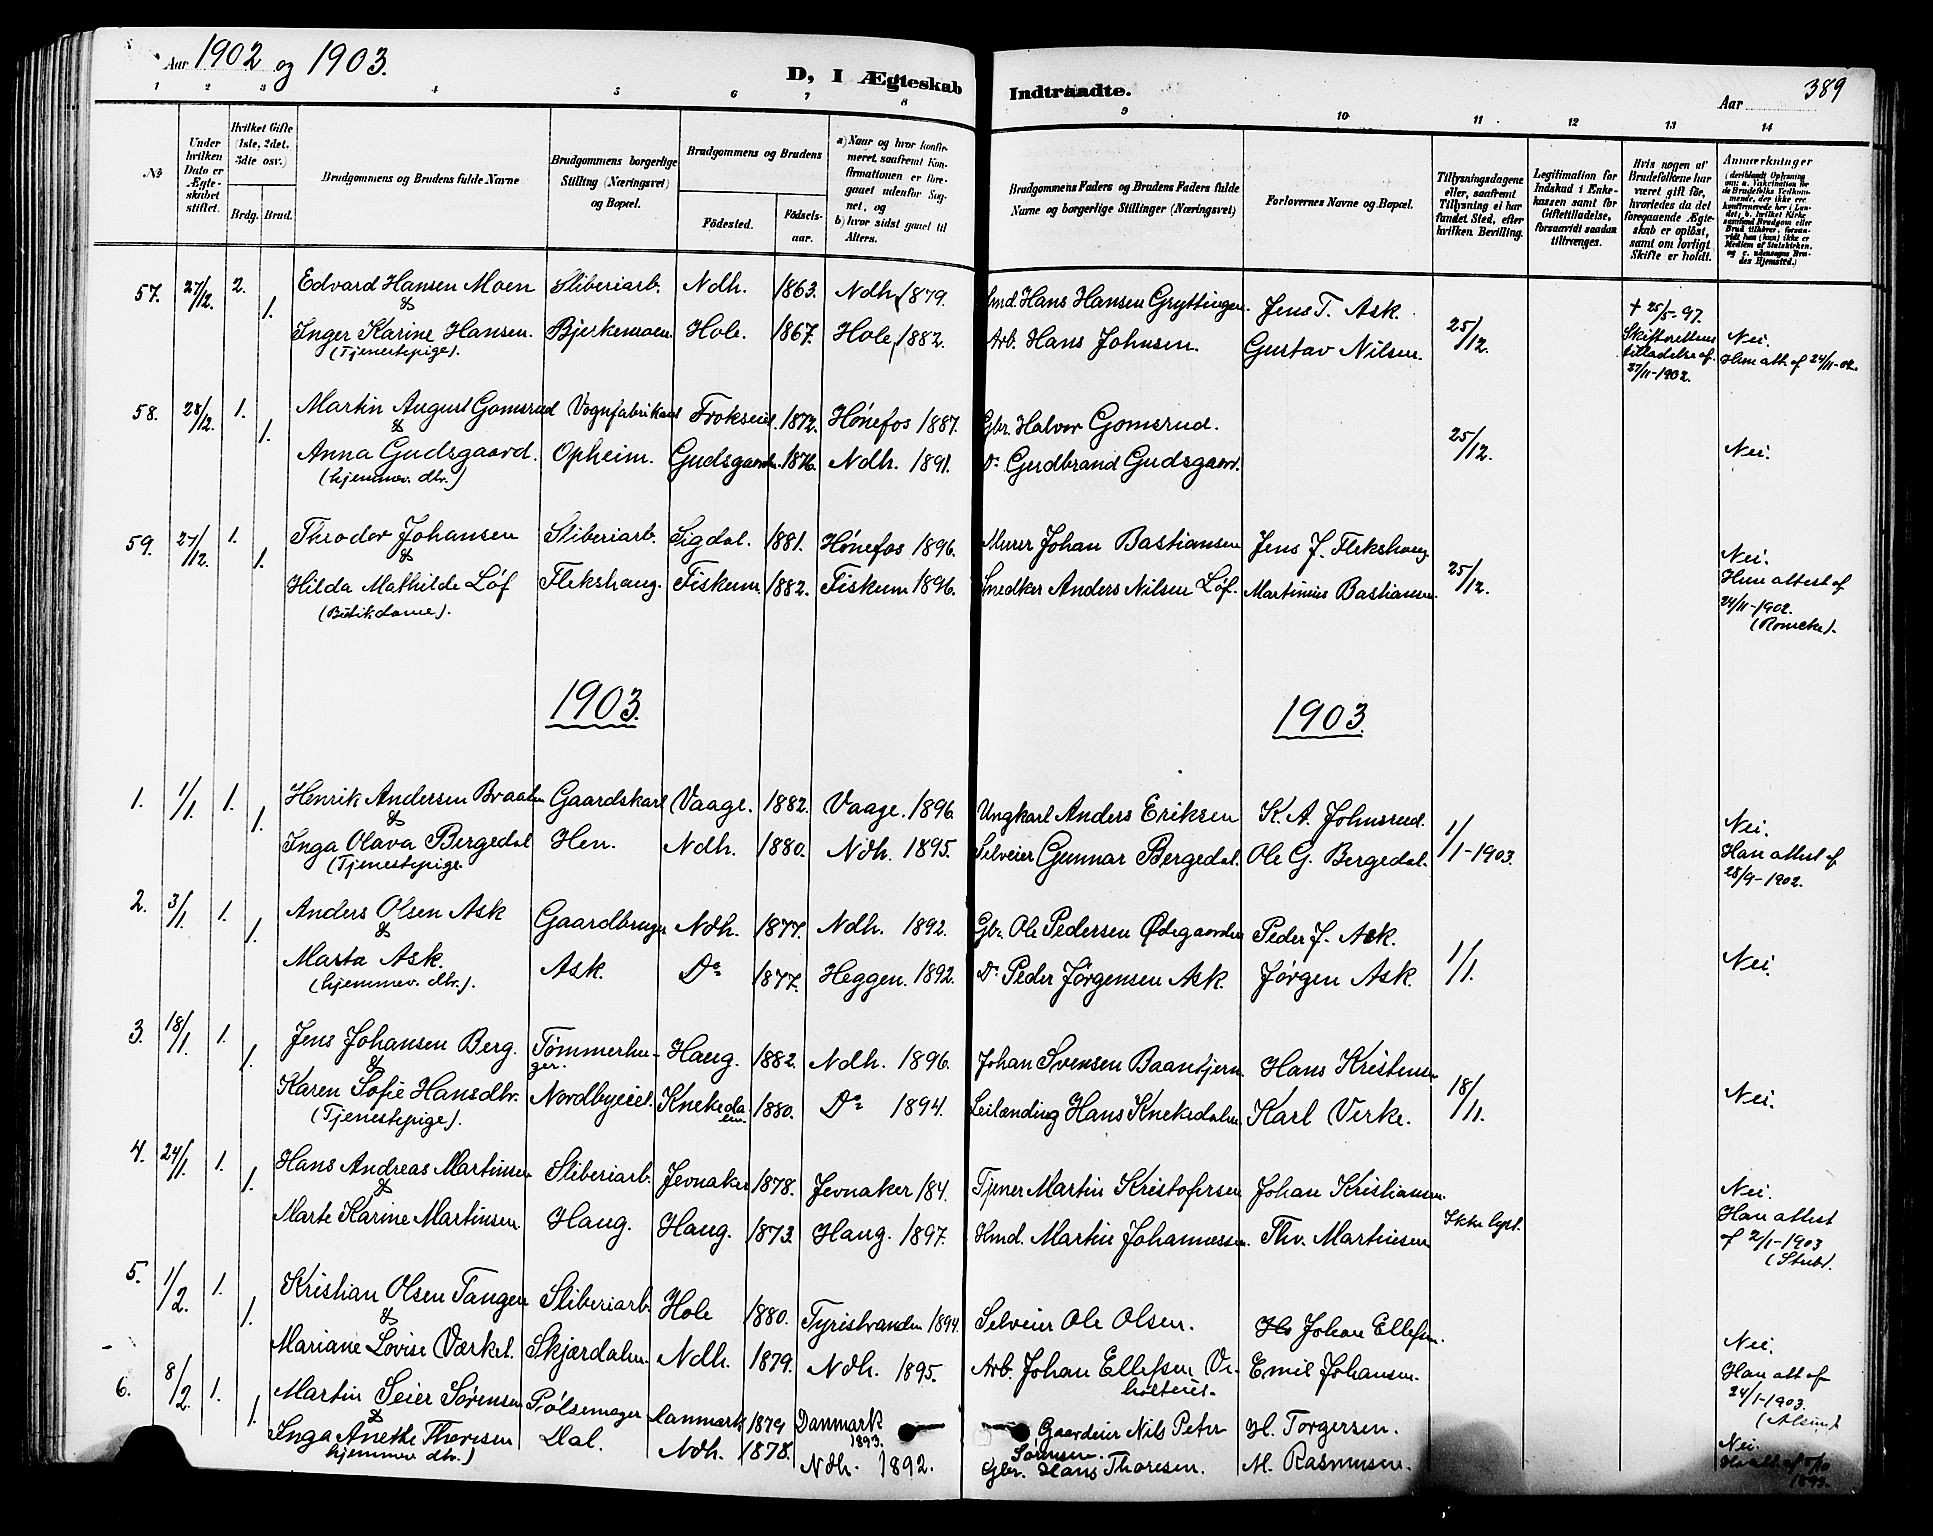 Aar 1902 og 1903.
D, I Ægteskab Indtraadte.
Aar 389
1 2 3 4 5 6 7 8 9 10 11 12 13 14
№
Under hvilken Dato er Ægteskabet stiftet.
Hvilket Gifte (1ste, 2det, 3die osv.)
Brdg. Brud.
Brudgommens og Brudens fulde Navne
Brudgommens borgerlige Stilling (Næringsvei) og Bopæl.
Brudgommens og Brudens
Födested. Födsels-aar.
a) Naar og hvor konfirmeret, saafremt Konfirmationen er foregaaet udenfor Sognet, og
b) hvor sidst gaaet til Alters.
Brudgommens Faders og Brudens Faders fulde Navne og borgerlige Stillinger (Næringsvei)
Forlovernes Navne og Bopæl.
Tillysningsdagene eller, saafremt Tillysning ei har fundet Sted, efter hvilken Bevilling.
Legitimation for Indskud i Enkekassen samt for Giftetilladelse, forsaavidt saadan tiltrænges.
Hvis nogen af Brudefolkene har været gift før, hvorledes da det foregaaende Ægteskab er opløst, samt om lovligt Skifte er holdt.
Anmærkninger
57. 27/12. 2. Edvard Hansen Moen Sliberiarb. Ndh. 1863. Ndh. 1879. Hmd. Hans Hansen Gryttingen. Jens T. Ask. + 25/5-97.
&
1. Inger Karine Hansen. Bjerkemoen Hole. 1867. Hole, 1882. Arb. Hans Johnsen. Gustav Nilsen. 25/12. Skifterettens tilladelse af 27/11-1902. Nei. Hun att. af 24/11-02.
(Tjenestepige).
58. 28/12. 1. Martin August Gomsrud Vognfabrikant 1872. Hónefos 1887. Gbr. Halvor Gomsrud.
&
1. Anna Gudsgaard. Opheim. Gudsgaard. 1876. Ndh. 1891. Do Gudbrand Gudsgaard. 25/12. Nei.
(hjemmev. dtr.)
59. 27/12. 1. Theodor Johansen Sliberiarb. Sigdal. 1881. Hónefos 1896. Murer Johan Bastiansen Jens J. Flekshaug
&
1. Hilda Mathilde Løf Flekshaug. Fiskum 1882. Fiskum 1896. Snedker Anders Nilsen Løf. Martinius Bastiansen. 25/12. Nei. Hun attest af 24/11-1902.
(Butikdame).
1903. 1903.
1. 1/1 1. Henrik Andersen Braaten Gaardskarl Vaage. 1882. Vaage. 1896. Ungkarl Anders Eriksen K. A. Johnsrud.
&
1. Inga Olava Bergedal Hen. Ndh. 1880. Ndh. 1895. Selveier Gunnar Bergedal. Ole G. Bergedal. 1/1-1903. Nei. Han attest af 28/9-1902.
(Tjenestepige
2. 3/1 1. Anders Olsen Ask Gaardbruger Ndh. 1877. Ndh. 1892. Gbr. Ole Pedersen Ødegaarden Peder J. Ask.
&
1. Marta Ask. Ask. Do 1877. Heggen. 1892. Do Peder Jørgensen Ask. Jørgen Ask. 1/1. Nei.
(hjemmev. dtr.).
3. 18/1. 1. Jens Johansen Berg. Tømmerhuger. Haug. 1882. Ndh. 1896. Johan Svensen Baantjern Hans Kristensen
&
1. Karen Sofie Hansdtr. Nordbyeiet. Knekedalen. 1880. Do 1894. Leilænding Hans Knekedalen. Karl Verke. 18/1. Nei.
(Tjenestepige).
4. 24/1. 1. Hans Andreas Martinsen Sliberiarb. Jevnaker 1878. Jevnaker 184. Tjener Martin Kristofersen Johan Kristiansen.
&
1. Marte Karine Martinsen. Haug. Haug. 1873. Haug. 1897. Hmd. Martin Johannessen. Thv. Martinsen Ikke lyst. Nei. Han attest af 2/1-1903
5. 1/2. 1. Kristian Olsen Tangen Sliberiarb. Hole 1880. Tyristranden 1894. Selveier Ole Olsen. Johan Ellefsen.
&
1. Mariane Lovise Værket. Skjærdalen. Ndh. 1879. Ndh. 1895. Arb. Johan Ellefsen Emil Johansen. Nei. Han att af 24/1-1903.
6. 8/2. 1. Martin Seier Sørensen Pølsemager Danmark 1879 Danmark 1893. Gaardeier Nils Peter Sørensen. H. Torgersen.
&
1. Inga Anette Thoresen Dal. Ndh. 1878. Ndh. 1892. Gbr. Hans Thoresen. M. Rasmusen. Nei.
hjemmev. dtr.)